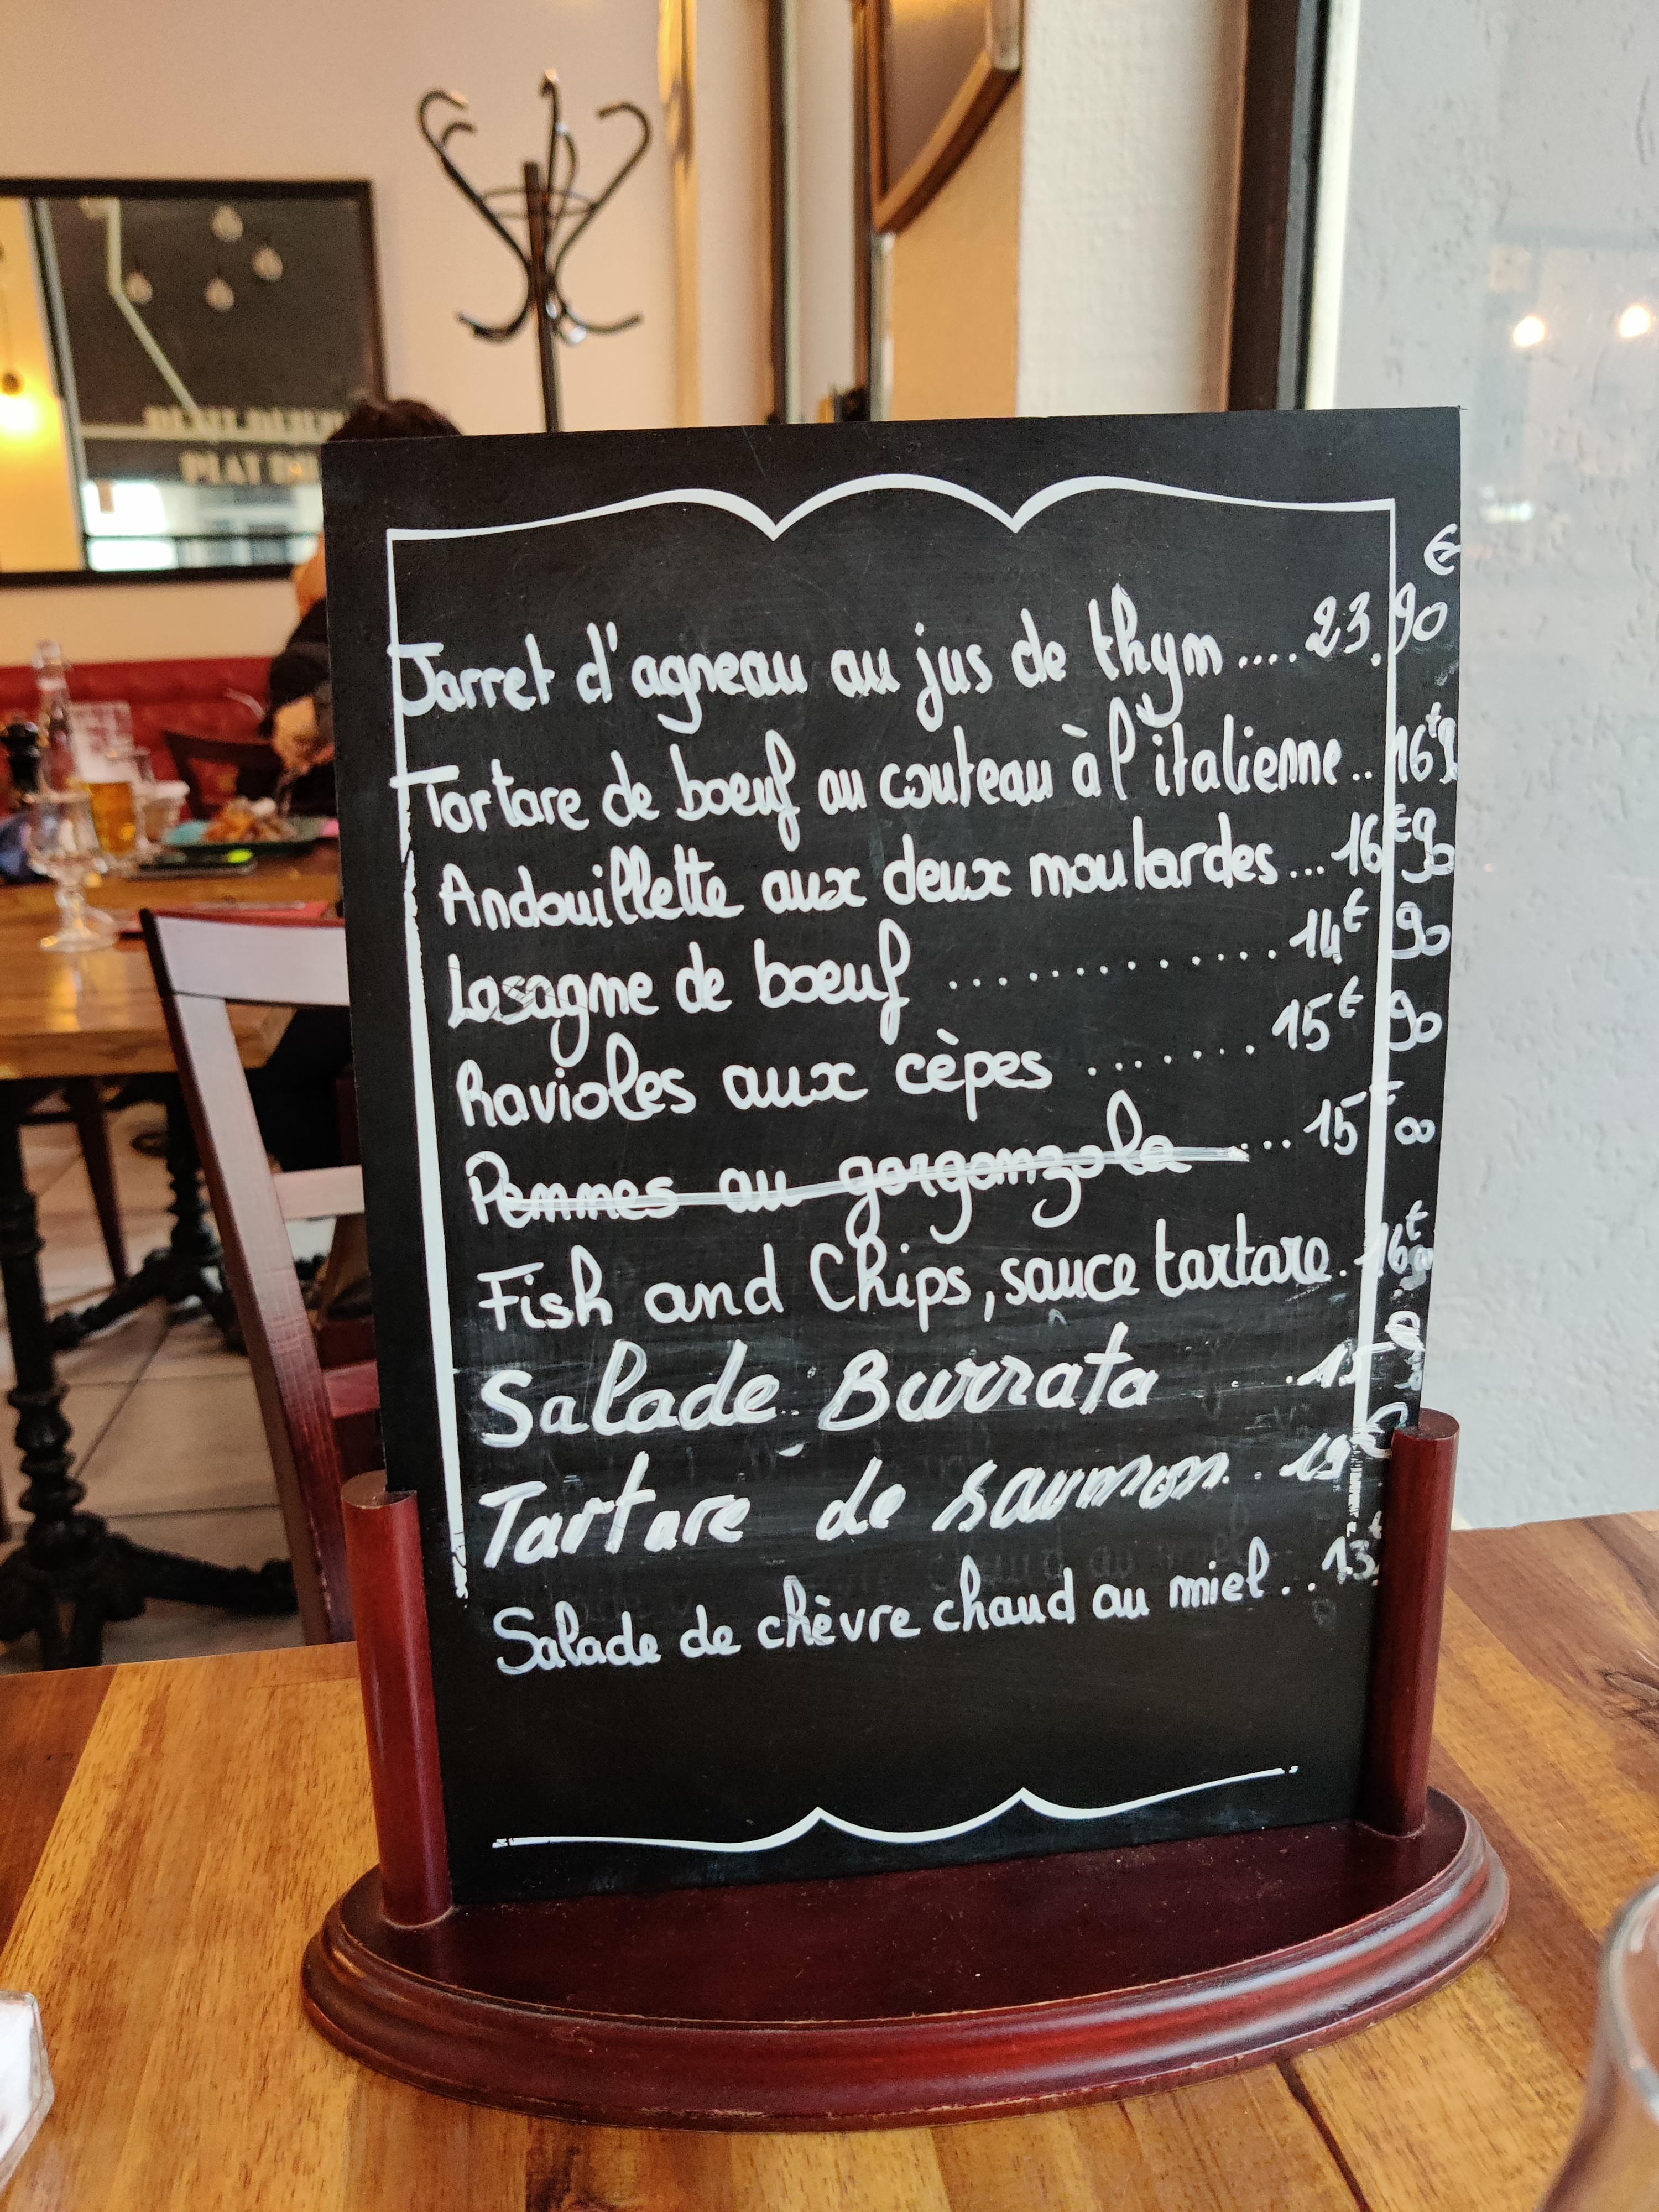 PLAT DU
€
Jarret d'agneau au jus de thym .... 23.90
Tartare de boeuf au couteau à l'italienne .. 16€9
Andouillette aux deux moutardes ... 16€90
Lasagne de boeuf ............. 14€90
Ravioles aux cèpes ....... 15€90
Pennes au gorgonzola ... 15€00
Fish and Chips, sauce tartare . 16€90
Salade Burrata .. 15
Tartare de saumon .. 19€
Salade de chèvre chaud au miel .. 13